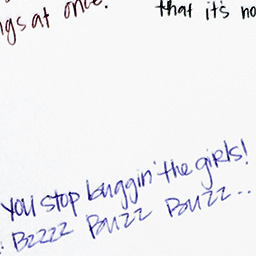 ngs at once!
that it's no
You stop buggin' the girls!
: Bzzzz Buzz Buzz..